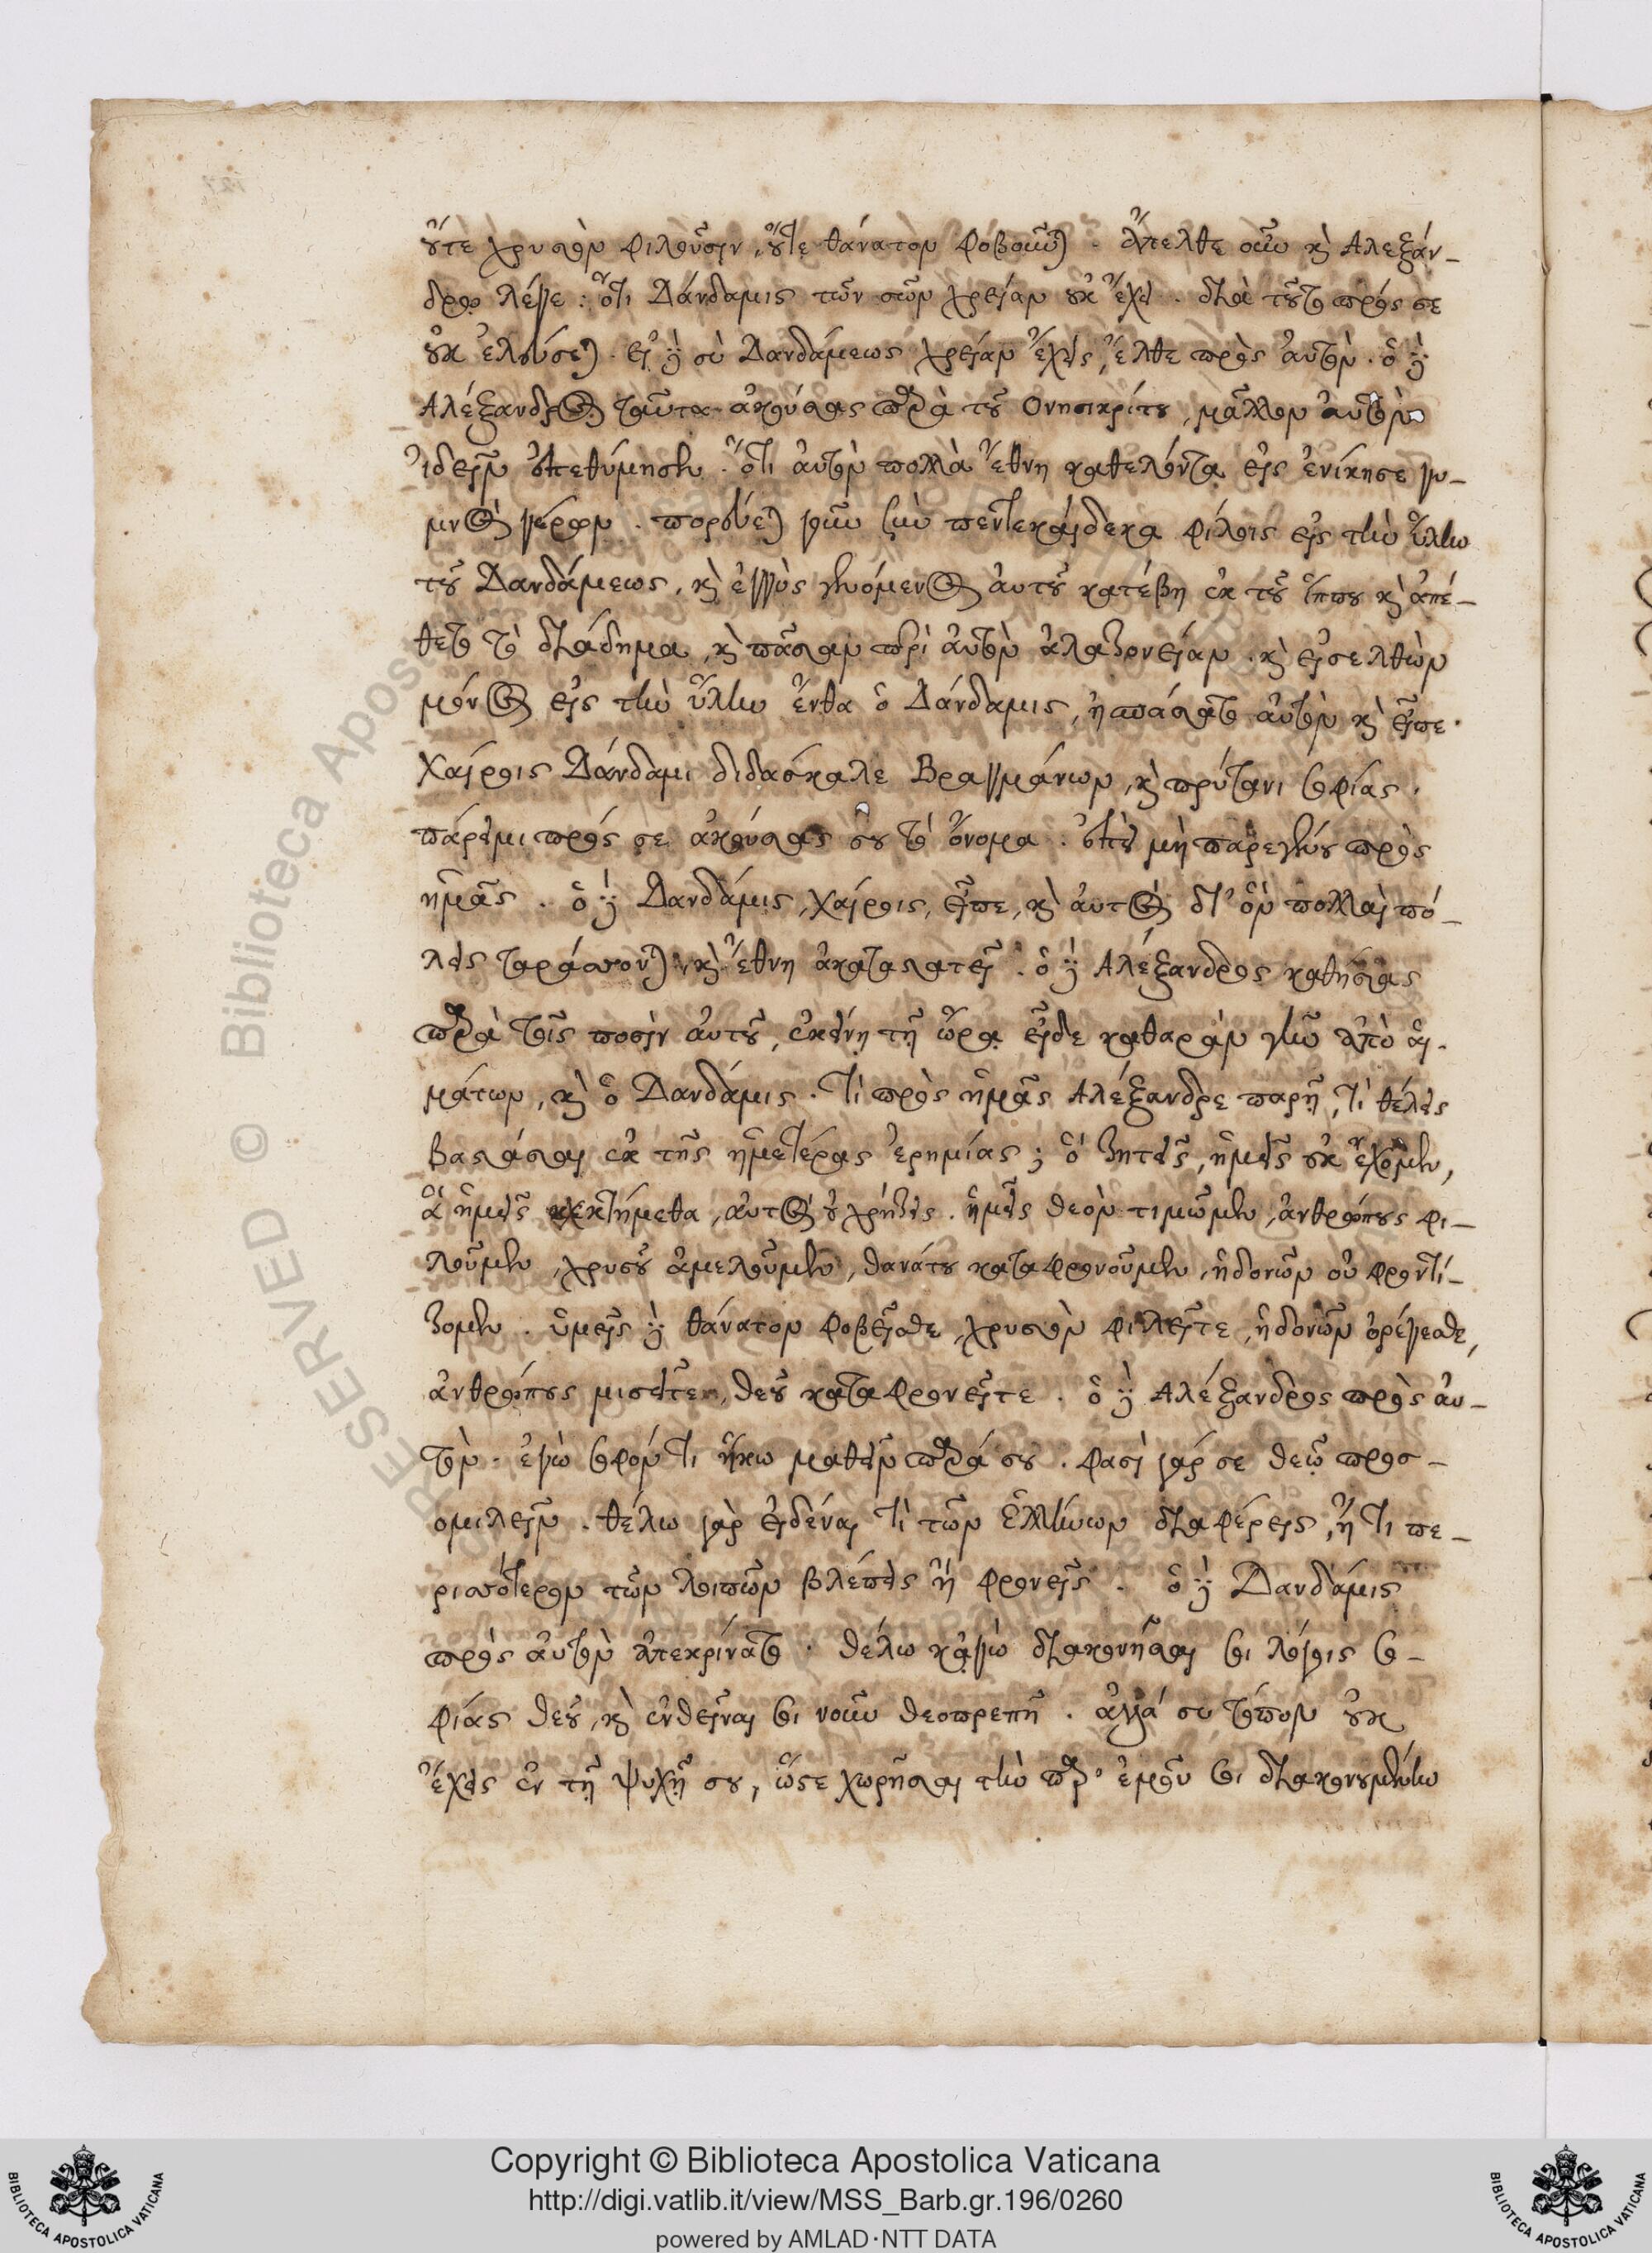 οὔτε χρυσὸν φιλοῦσιν, οὔτε θάνατον φοβοῦνται. ἄπελθε οὖν καὶ Ἀλεξάν-
δρῳ λέγε: ὅτι Δάνδαμις τῶν σῶν χρείαν οὐκ ἔχει. διὰ τοῦτο πρός σε
οὐκ ἐλεύσεται. εἰ δὲ σὺ Δανδάμεως χρείαν ἔχεις, ἐλθὲ πρὸς αὐτὸν. ὁ δὲ
Ἀλέξανδρος ταῦτα ἀκούσας παρὰ τοῦ Ὀνησικρίτου, μᾶλλον αὐτὸν
ἰδεῖν ἐπεθύμησεν. ὅτι αὐτὸν πολλὰ ἔθνη καθελόντα εἷς ἐνίκησε γυ-
μνὸς γέρων. πορεύεται γοῦν σὺν πεντεκαίδεκα φίλοις εἰς τὴν ὕλην
τοῦ Δανδάμεως, καὶ ἐγγὺς γενόμενος αὐτοῦ κατέβη ἐκ τοῦ ἵππου καὶ ἀπέ-
θετο τὸ διάδημα, καὶ πᾶσαν περὶ αὐτὸν ἀλαζονείαν. καὶ εἰσελθὼν
μόνος εἰς τὴν ὕλην ἔνθα ὁ Δάνδαμις, ἠσπάσατο αὐτὸν καὶ εἶπε.
Χαίροις Δάνδαμι διδάσκαλε Βραγμάνων, καὶ πρύτανι σοφίας.
πάρειμι πρός σε ἀκούσας σου τὸ ὄνομα. ἐπεὶ μὴ παρεγένου πρὸς
ἡμᾶς. ὁ δὲ Δανδάμις, χαίροις, εἶπε, καὶ αὐτὸς δι' ὃν πολλαὶ πό-
λεις ταράσσονται καὶ ἔθνη ἀκαταστατεῖ. ὁ δὲ Ἀλέξανδρος καθήσας
παρὰ τοῖς ποσὶν αὐτοῦ, ἐκείνῃ τῇ ὥρᾳ εἶδε καθαρὰν γῆν ἀπὸ αἱ-
μάτων, καὶ ὁ Δανδάμις. τί πρὸς ἡμᾶς Ἀλέξανδρε παρῇ, τί θέλεις
βαστάσαι ἐκ τῆς ἡμετέρας ἐρημίας; ὃ ζητεῖς, ἡμεῖς οὐκ ἔχομεν,
ἃ ἡμεῖς κεκτήμεθα, αὐτὸς οὐ χρῄζεις. ἡμεῖς θεὸν τιμῶμεν, ἀνθρώπους φι-
λοῦμεν, χρυσοῦ ἀμελοῦμεν, θανάτου καταφρονοῦμεν, ἡδονῶν οὐ φροντί-
ζομεν. ὑμεῖς δὲ θάνατον φοβεῖσθε, χρυσὸν φιλεῖτε, ἡδονῶν ὀρέγεσθε,
ἀνθρώπους μισεῖτε, θεοῦ καταφρονεῖτε. ὁ δὲ Ἀλέξανδρος πρὸς αὐ-
τὸν. ἐγὼ σοφόν τι ἥκω μαθεῖν παρά σου. φασὶ γάρ σε θεῷ προσ-
ομιλεῖν. θέλω γὰρ εἰδέναι τί τῶν Ἑλλήνων διαφέρεις, ἢ τί πε-
ρισσότερον τῶν λοιπῶν βλέπεις ἢ φρονεῖς. ὁ δὲ Δανδάμις
πρὸς αὐτὸν ἀπεκρίνατο. θέλω κἀγὼ διακονῆσαι σοι λόγοις σο-
φίας θεοῦ, καὶ ἐνθεῖναι σοι νοῦν θεοπρεπῆ. ἀλλά συ τόπον οὐκ
ἔχεις ἐν τῇ ψυχῇ σου, ὥστε χωρῆσαι τὴν παρ' ἐμοῦ σοι διακονουμένην
Copyright © Biblioteca Apostolica Vaticana
http://digi.vatlib.it/view/MSS_Barb.gr.196/0260
powered by AMLAD·NTT DATA
BIBLIOTECA APOSTOLICA VATICANA
BIBLIOTECA APOSTOLICA VATICANA